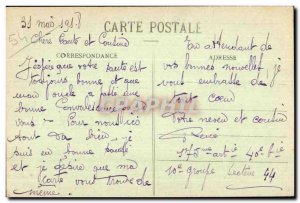 31 mai 1917
CARTE POSTALE
Chère tante et Cousine
En attendant de
CORRESPONDANCE
ADRESSE
J'espère que votre santé est
vos bonnes nouvelles je
toujours bonne et que
vous embrasse de
mon oncle a passé une
tout cœur
bonne
vous - Pour nous ici
Votre neveu et cousin
tout va bien je
suis en bonne santé
et je désire que ma
10e groupe Secteur 44
carte vous trouve de
même.